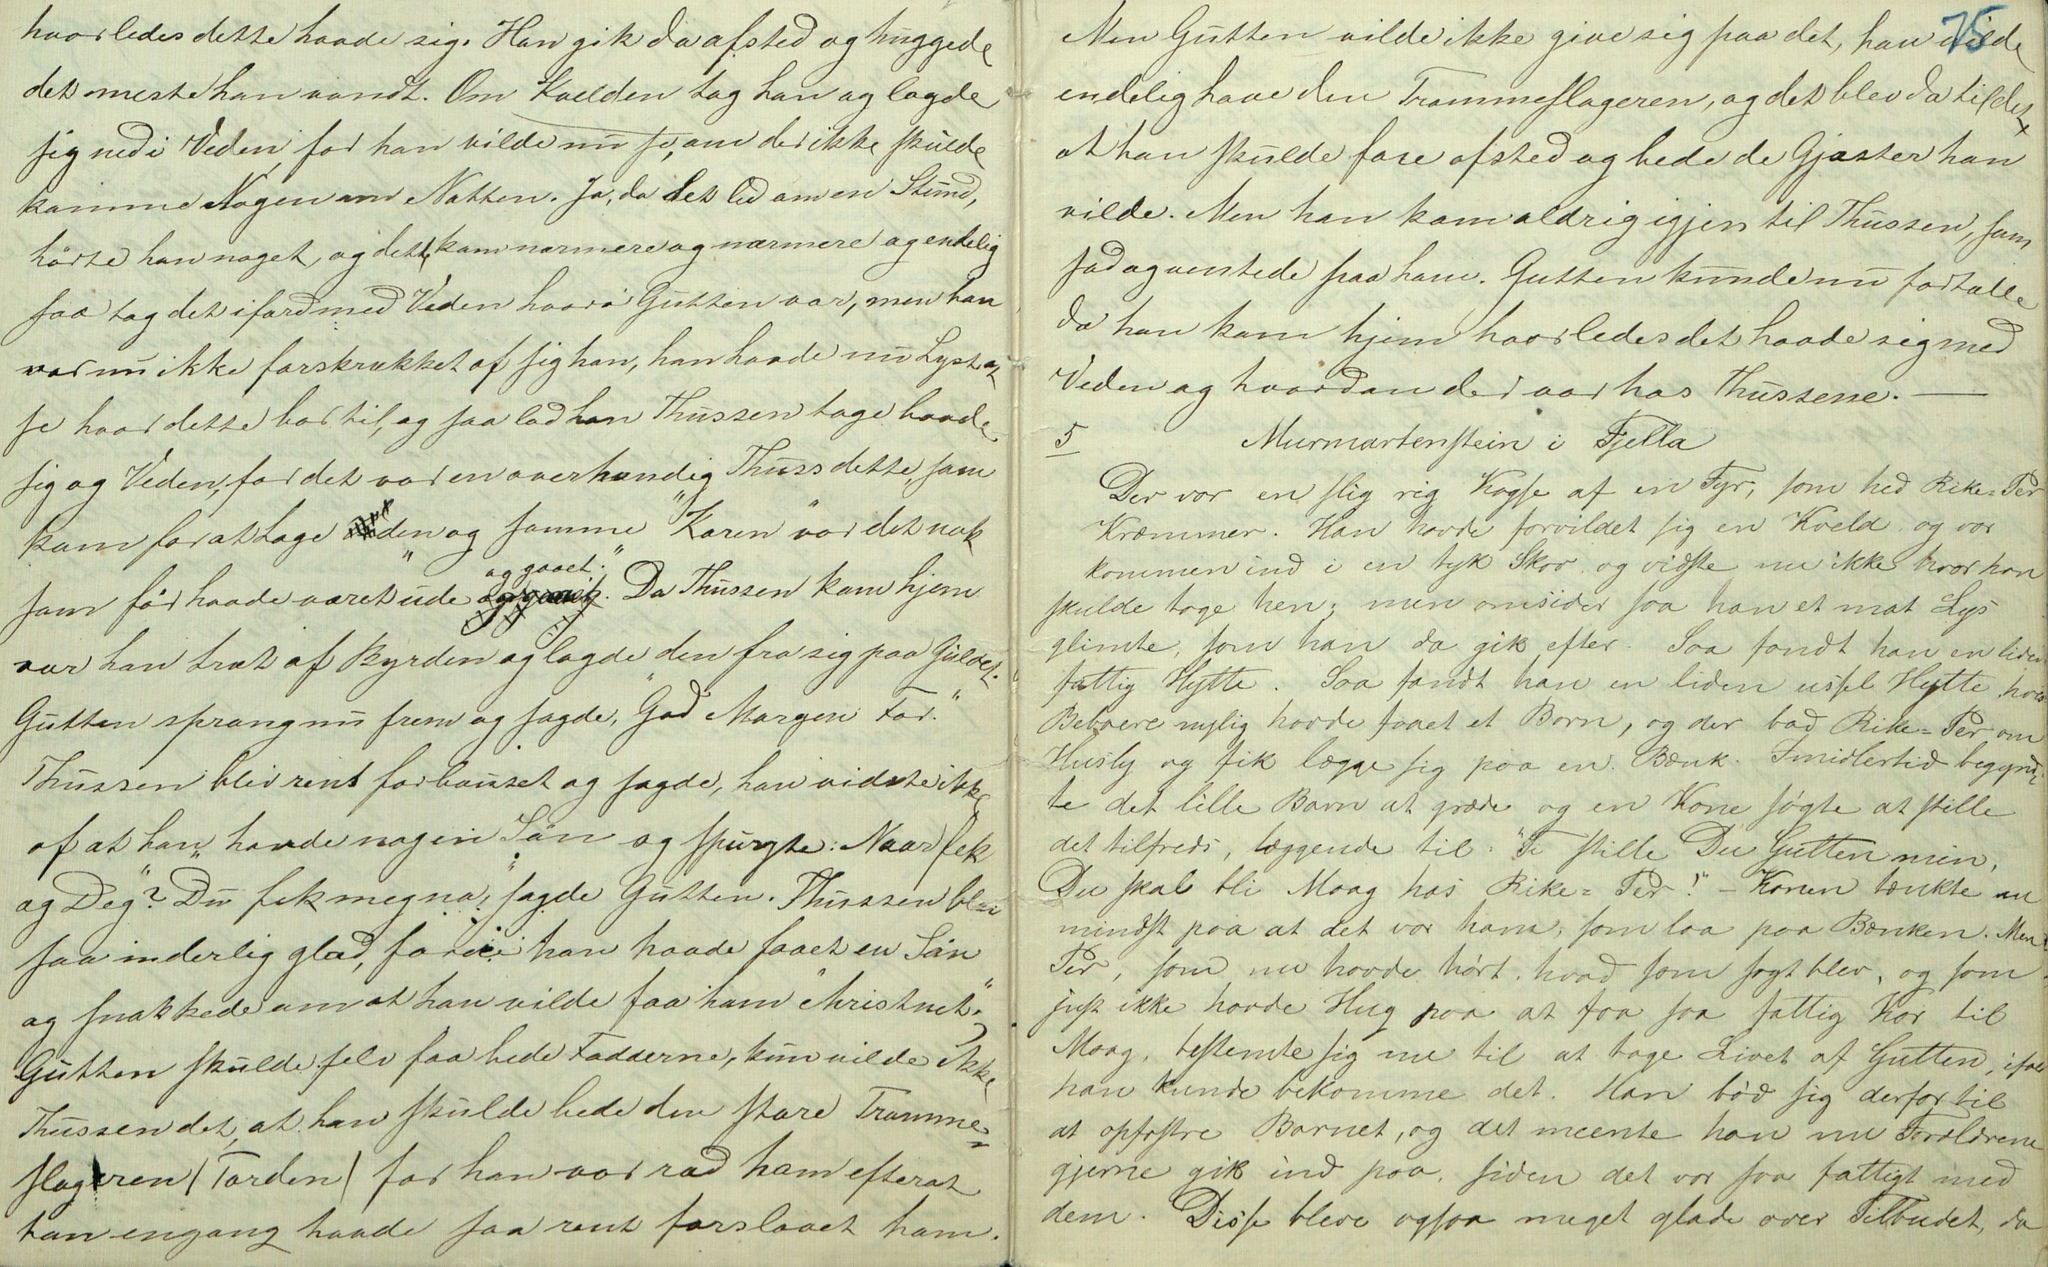 hvorledes dette havde sig. Han gik da afsted og huggede
det meste han vandt. Om Kvelden tog han og lagde
sig ned i Veden, for han vilde nu se, om der ikke skulde
komme Nogen om Natten. Ja, da det led om en Stund,
hørte han noget, og det kom nærmere og nærmere og endelig
saa tog det ifærd med Veden hvori Gutten var, men han
var nu ikke forskrækket af sig han, han havde nu Lyst at
se hvor dette bar til, og saa lod han Thussen tage baade
sig og Veden, for det var en overhændig Thuss dette, som
kom for at tage den og samme "Karen" var det nok
som før havde været "ude og gaaet." Da Thussen kom hjem
var han træt af Byrden og lagde den fra sig paa Gulvet.
Gutten sprang nu frem og sagde, "God Morgen Far."
Thussen blev rent forbauset og sagde, han vidste ikke
af at han havde nogen Søn og spurgte: Naar fek
eg Deg"? "Du fek meg no," sagde Gutten. Thussen blev
saa inderlig glad, fordi han havde faaet en Søn
og snakkede om at han vilde faa ham "christnet".
Gutten skulde selv faa bede Fadderne, kun vilde ikke
Thussen det, at han skulde bede den store Tromme-
slageren (Torden) for han var ræd ham efterat
han engang havde saa rent forslaaet ham.
75
Men Gutten vilde ikke give sig paa det, han vilde
endelig have den Trommeslageren, og det blev da til det
at han skulde fare afsted og bede de Gjæster han
vilde. Men han kom aldrig igjen til Thussen, som
sad og ventede paa ham. Gutten kunde nu fortælle
da han kom hjem hvorledes det havde sig med
Veden og hvordan der var hos Thussene. —
5 Murmartenstein i Fjella
Der var en slig rig Kogse af en Fyr, som hed Rike-Per
Kræmmer. Han havde forvildet sig en Kveld og var
kommen ind i en tyk Skov og vidste nu ikke hvor han
skulde tage hen; men omsider saa han et mat Lys
glimte, som han da gik efter. Saa fandt han en liden
fattig Hytte. Saa fandt han en liden ussel Hytte, hvis
Beboere nylig havde faaet et Barn, og der bad Rike-Per om
Husly og fik lægge sig paa en Bænk. Imidlertid begynd-
te det lille Barn at græde og en Kone søgte at stille
det tilfreds, læggende til: "Ti stille Du Gutten min,
Du skal bli Maag hos Rike-Per!" – Konen tænkte nu
mindst paa at det var ham, som laa paa Bænken. Men
Per, som nu havde hørt, hvad som sagt blev, og som
just ikke havde Hug paa at faa saa fattig Kar til
Maag, bestemte sig nu til at tage Livet af Gutten, ifald
han kunde bekomme det. Han bød sig derfor til
at opfostre Barnet, og det meente han nu Forældrene
gjerne gik ind paa, siden det var saa fattigt med
dem. Disse bleve ogsaa meget glade over Tilbudet, da